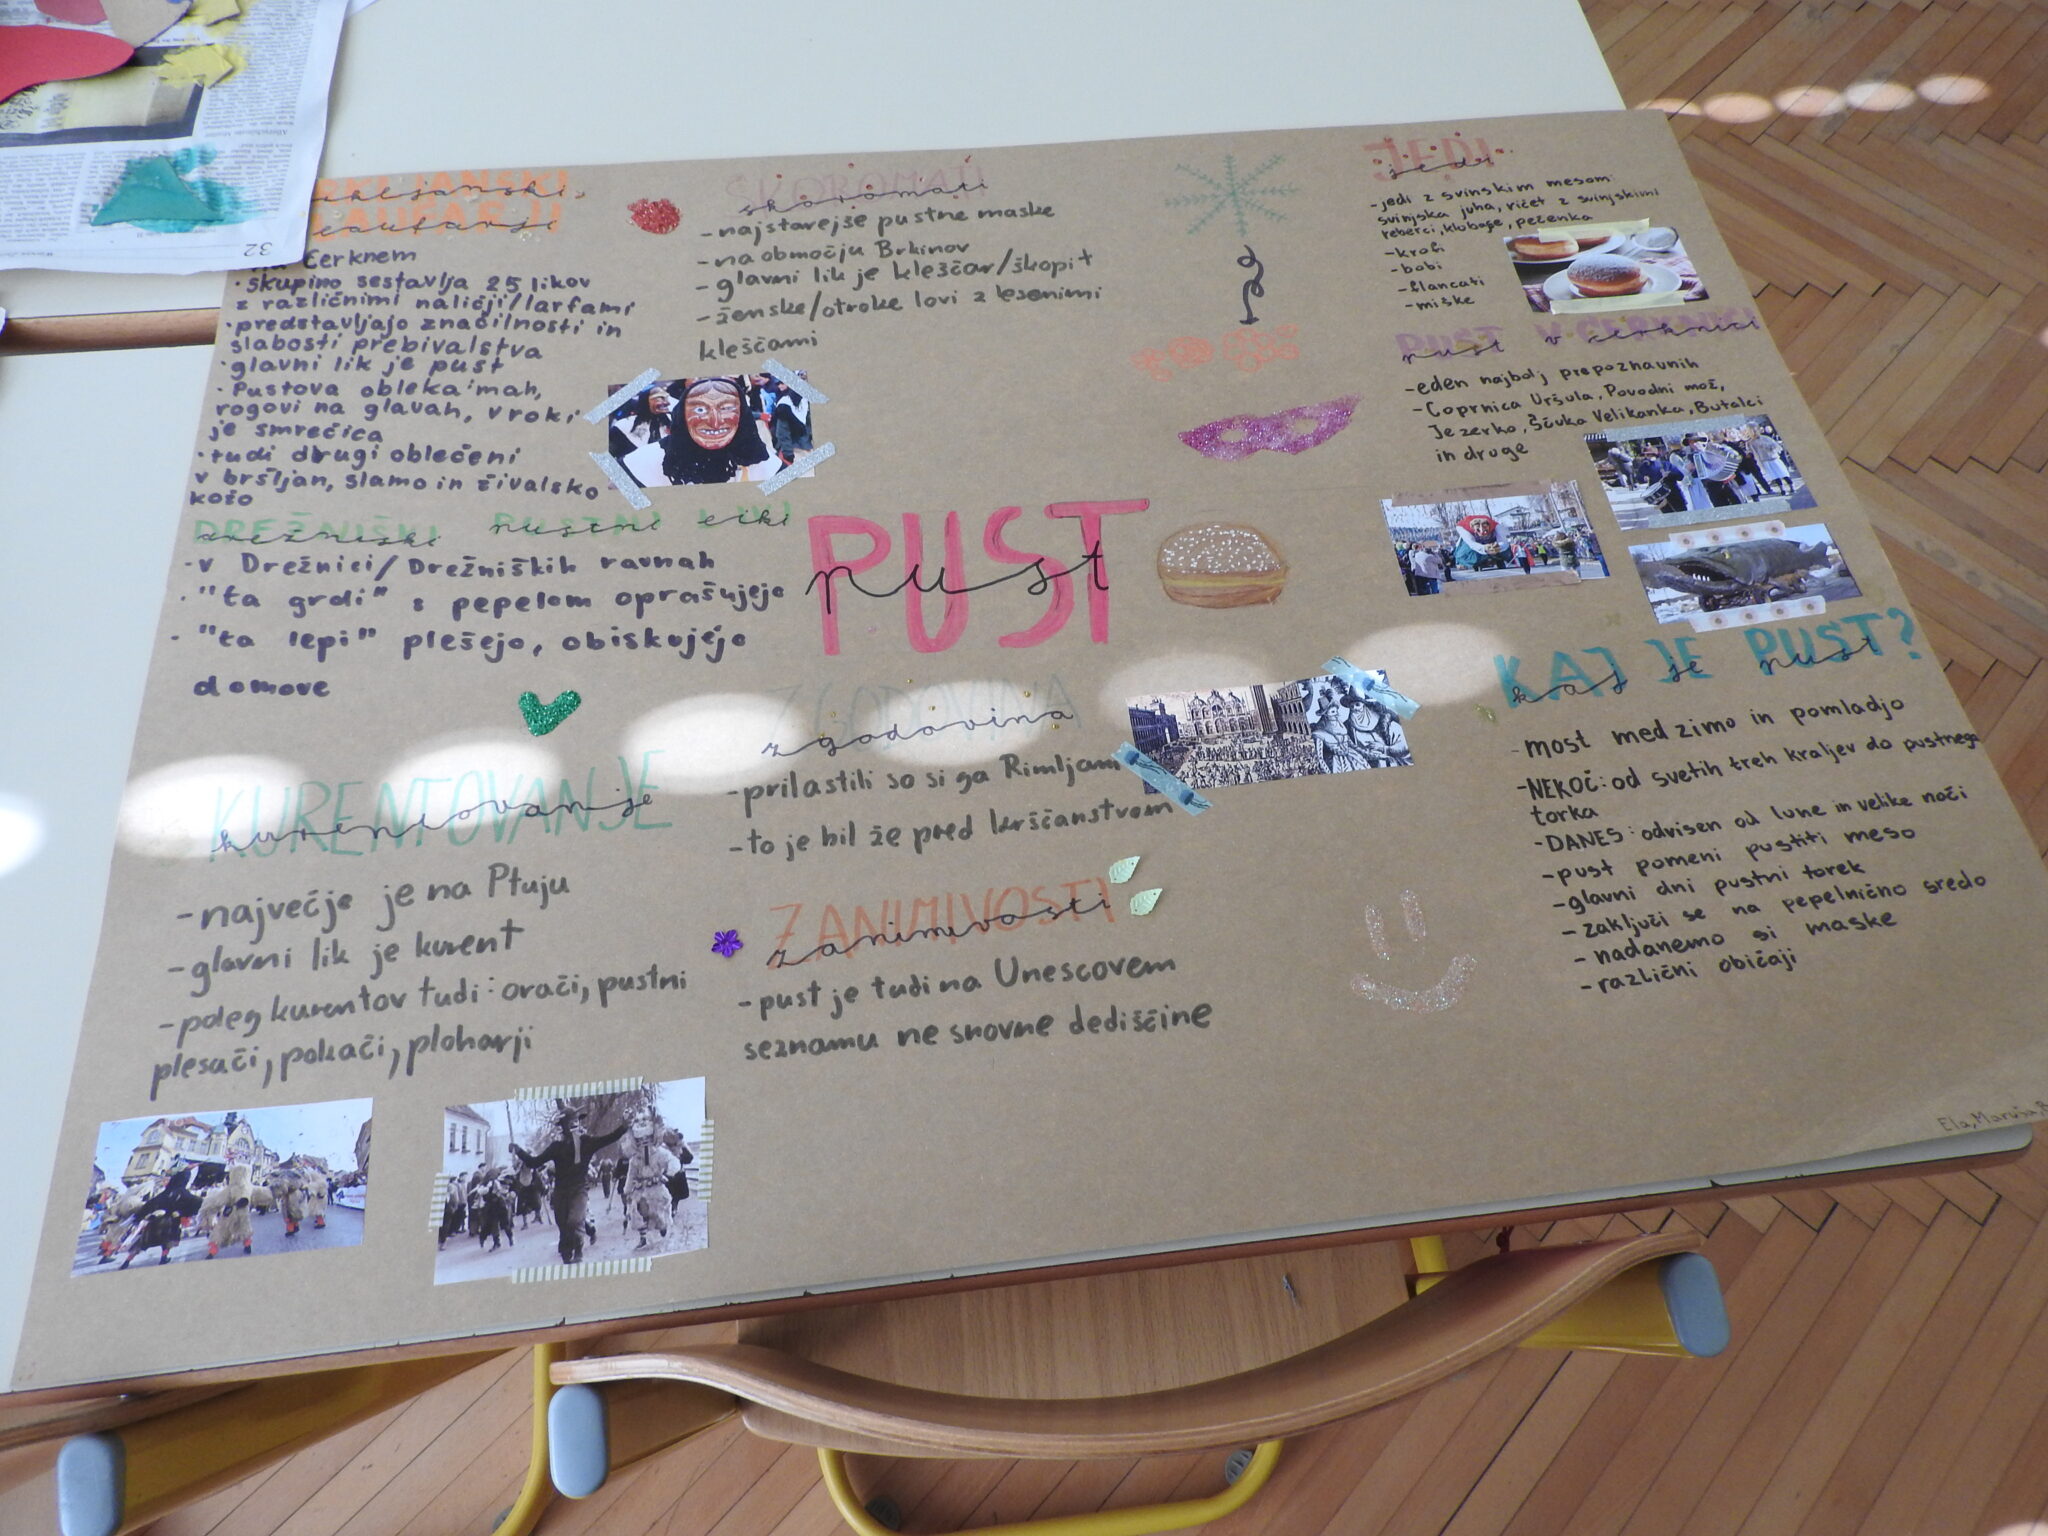 PUST
pust
cerkljanski
laufarji
Cerknem
• skupino sestavlja 25 likov
z različnimi naličji/larfami
• predstavljajo značilnosti in
slabosti prebivalstva
• glavni lik je pust
• Pustova obleka: mah,
rogovi na glavah, v roki
je smrečica
• tudi drugi oblečeni
v bršljan, slamo in živalsko
kožo
DREŽNIŠKI PUSTNI LIKI
drežniški pustni liki
- v Drežnici/Drežniških ravnah
• "ta grdi" s pepelom oprašujejo
• "ta lepi" plešejo, obiskujejo
domove
KURENTOVANJE
kurentovanje
- največje je na Ptuju
- glavni lik je kurent
- poleg kurentov tudi: orači, pustni
plesači, pokači, ploharji
ŠKOROMATI
škoromati
- najstarejše pustne maske
- na območju Brkinov
- glavni lik je kleščar/škopit
- ženske/otroke lovi z lesenimi
kleščami
ZGODOVINA
zgodovina
- prilastili so si ga Rimljani
- to je bil že pred krščanstvom
ZANIMIVOSTI
zanimivosti
- pust je tudi na Unescovem
seznamu ne snovne dediščine
JEDI
jedi
- jedi z svinskim mesom:
svinjska juha, ričet z svinjskimi
reberci, klobase, pečenka
- krofi
- bobi
- flancati
- miške
PUST V CERKNICI
pust v cerknici
- eden najbolj prepoznavnih
- Coprnica Uršula, Povodni mož,
Jezerko, Ščuka Velikanka, Butalci
in druge
KAJ JE PUST?
kaj je pust
- most med zimo in pomladjo
- NEKOČ: od svetih treh kraljev do pustnega
torka
- DANES: odvisen od lune in velike noči
- pust pomeni pustiti meso
- glavni dni pustni torek
- zaključi se na pepelnično sredo
- nadanemo si maske
- različni običaji
Ela, Maruša,
32